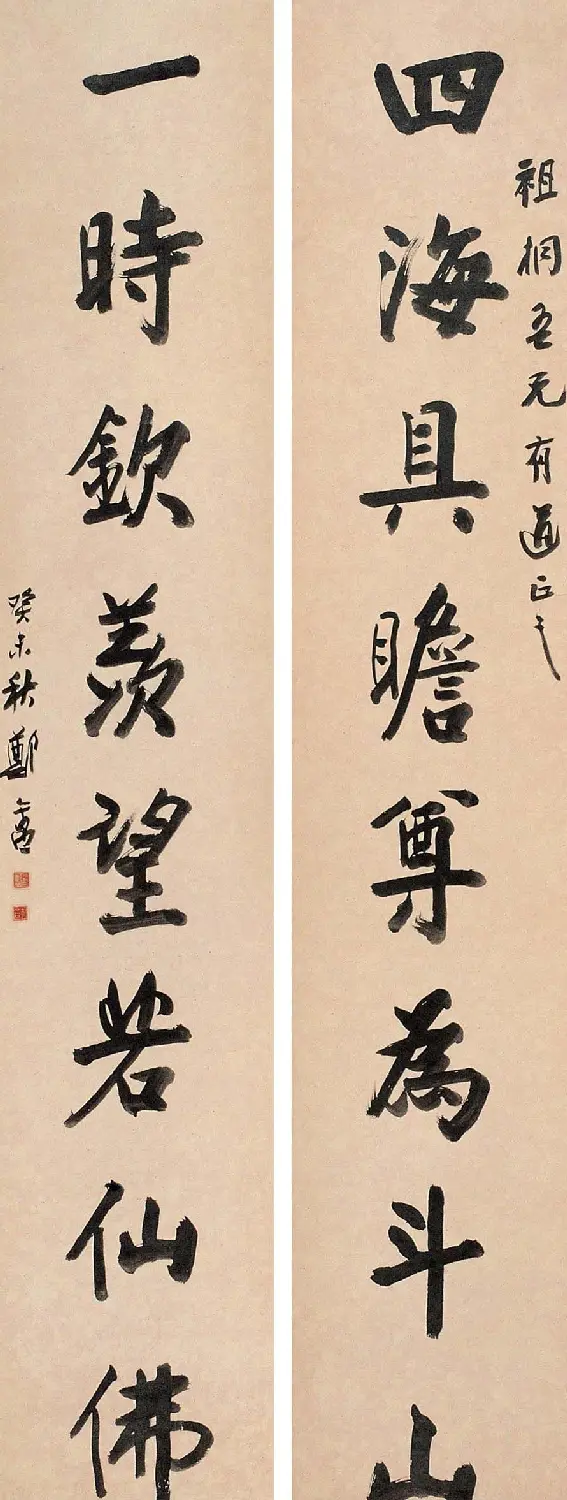 祖桐吾兄有道正之
四海具瞻尊為斗山
一時欽羨望若仙佛
癸未秋鄭午昌